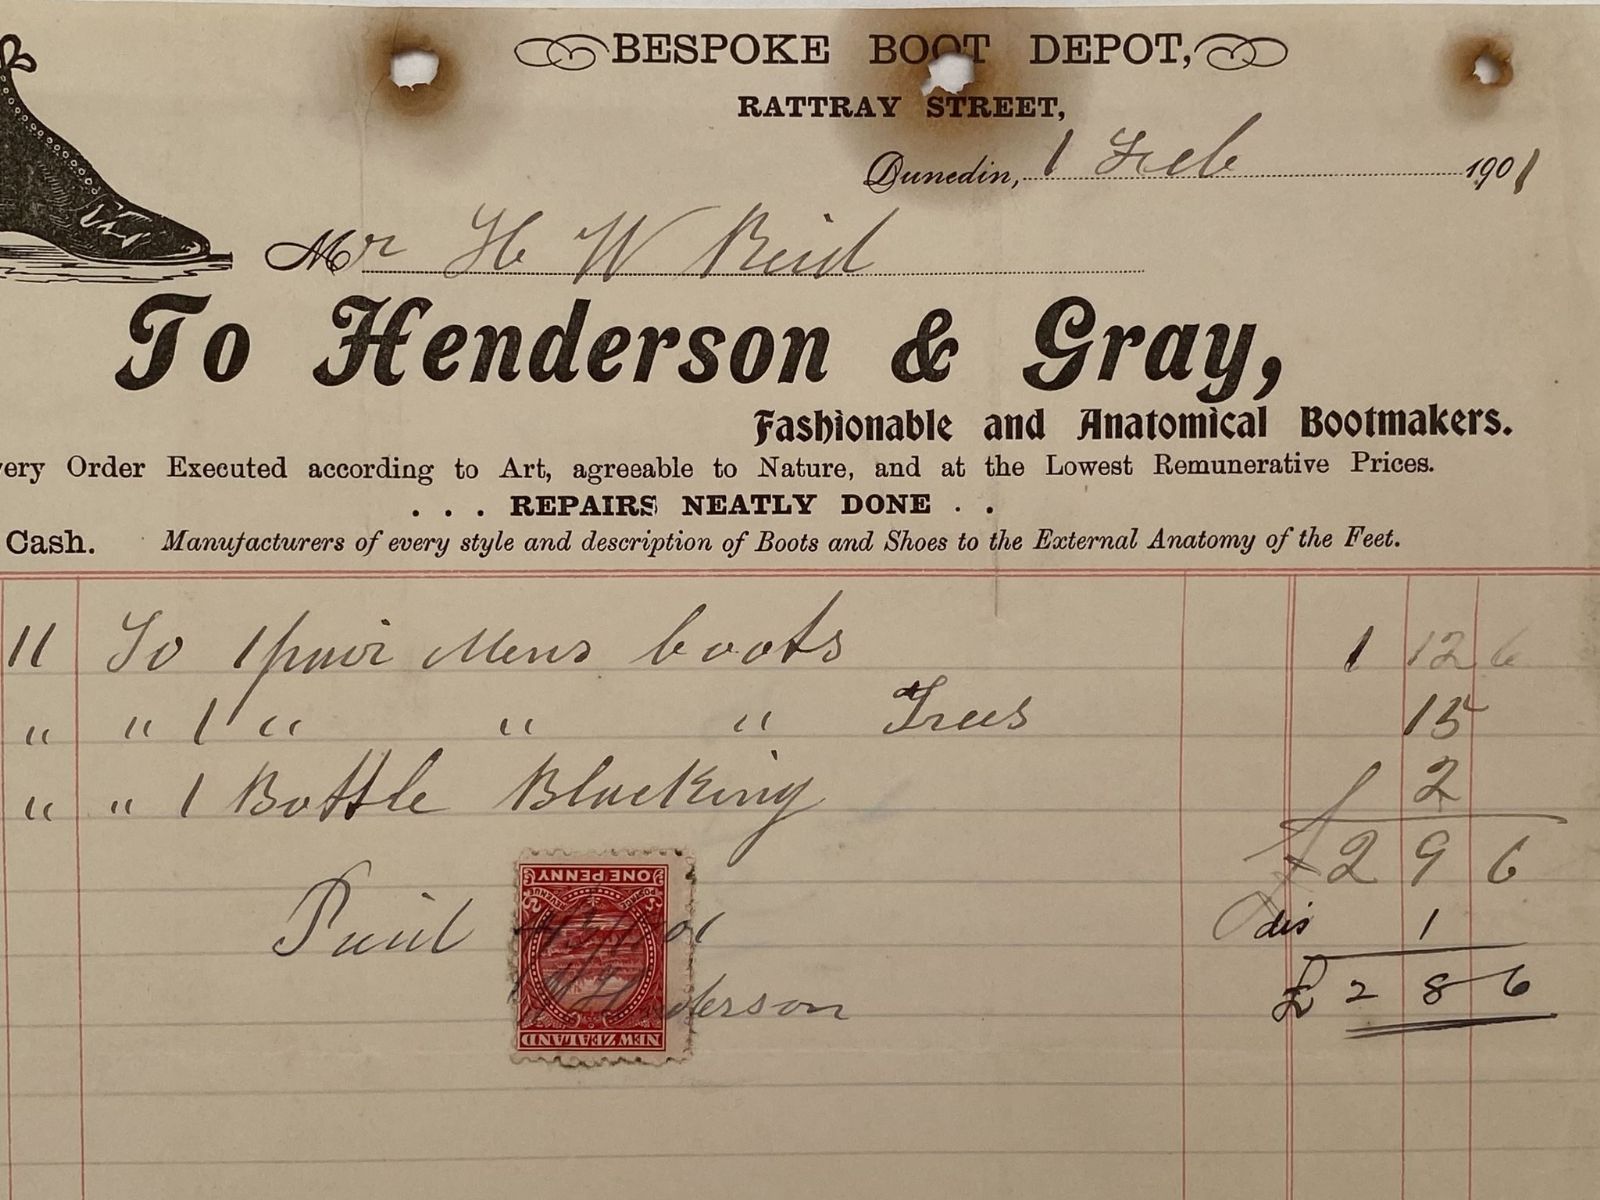 BESPOKE BOOT DEPOT,
RATTRAY STREET,
Dunedin, 1 Feb 1901
Mr H W Reid
To Henderson & Gray,
Fashionable and Anatomical Bootmakers.
very Order Executed according to Art, agreeable to Nature, and at the Lowest Remunerative Prices.
. . . REPAIRS NEATLY DONE . .
Cash. Manufacturers of every style and description of Boots and Shoes to the External Anatomy of the Feet.
11 To 1 pair Mens boots 1 12 6
" " 1 " " " Trees 15
" " 1 Bottle Blacking 2
£ 2 9 6
Paid
dis 1
Henderson
£ 2 8 6
ONE PENNY
POSTAGE REVENUE
NEW ZEALAND